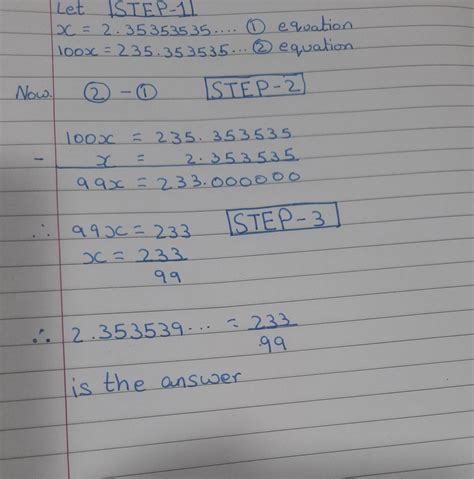 Let STEP-1
x = 2.35353535.... ① equation
100x = 235.353535... ② equation
Now. ② - ① STEP-2
100x = 235.353535
- x = 2.353535
99x = 233.000000
∴ 99x = 233 STEP-3
x = 233
99
∴ 2.353539... = 233
99
is the answer